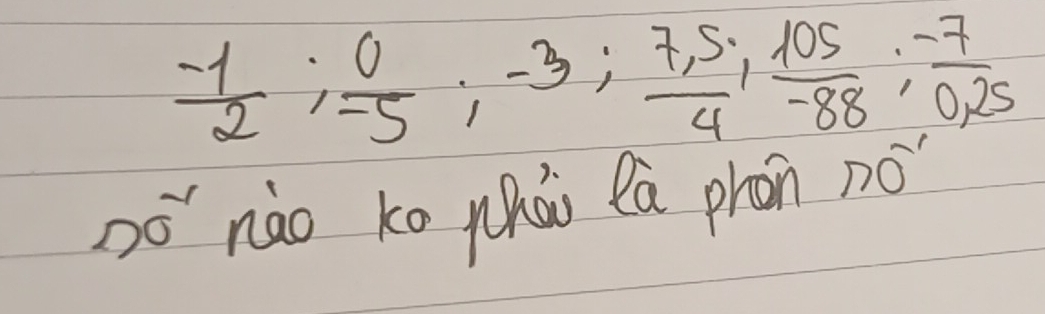 -1/2 ; 0/-5 ; -3 ; 7,5/4 ; 105/-88 ; -7/0,25
số nào ko phải là phân số